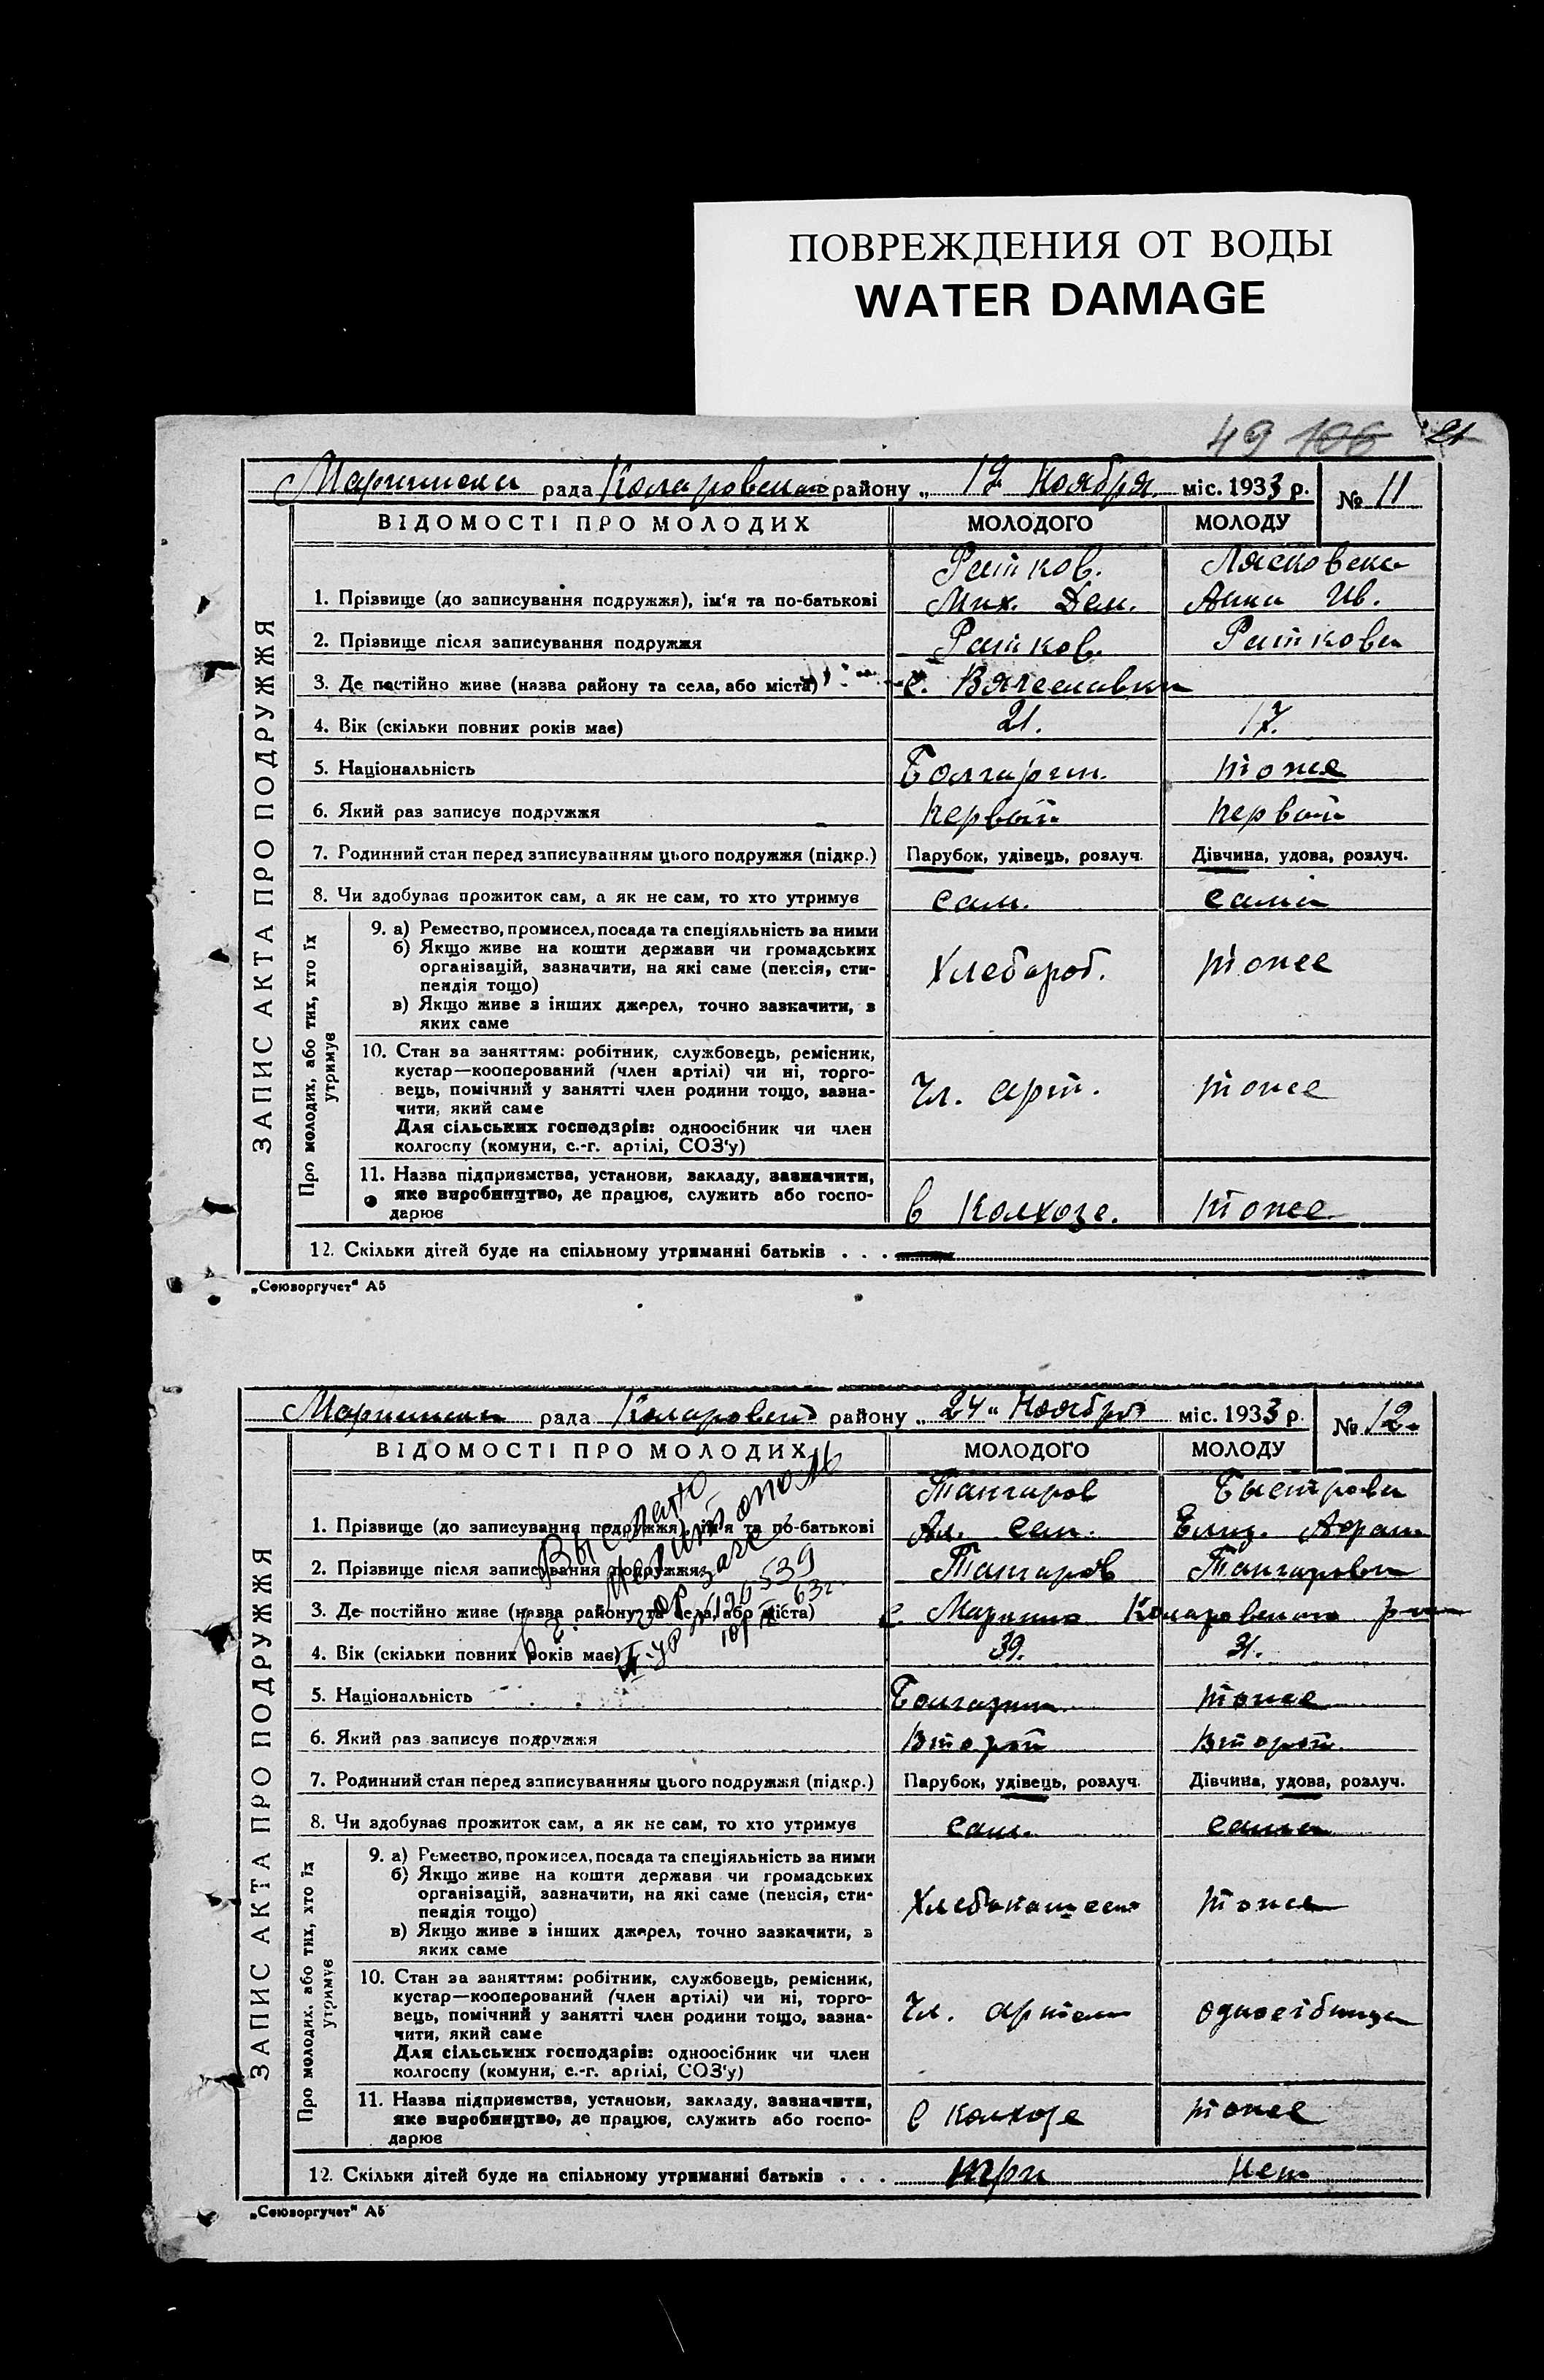 ПОВРЕЖДЕНИЯ ОТ ВОДЫ
WATER DAMAGE
49 106 21
рада района „ 12 Ноября міс. 1933 р. № 11
ВІДОМОСТІ ПРО МОЛОДИХ МОЛОДОГО МОЛОДУ
ЗАПИС АКТА ПРО ПОДРУЖЖЯ
Ратков. Лясковска
1. Прізвище (до записування подружжя), ім'я та по-батькові Мих. Дем. Анна Ив.
2. Прізвище після записування подружжя Ратков. Раткова
3. Де постійно живе (назва району та села, або міста) с. Вячеславка
4. Вік (скільки повних років має) 21. 17.
5. Національність Болгарин. тоже
6. Який раз записує подружжя Первый Первый
7. Родинний стан перед записуванням цього подружжя (підкр.) Парубок, удівець, розлуч. Дівчина, удова, розлуч.
8. Чи здобуває прожиток сам, а як не сам, то хто утримує сам. сама
Про молодих, або тих, хто їх утримує
9. а) Ремество, промисел, посада та спеціяльність за ними
б) Якщо живе на кошти держави чи громадських
організацій, зазначити, на які саме (пенсія, сти-
пендія тощо) Хлебороб. тоже
в) Якщо живе з інших джерел, точно зазначити, з
яких саме
10. Стан за заняттям: робітник, службовець, ремісник,
кустар—кооперований (член артілі) чи ні, торго-
вець, помічний у занятті член родини тощо, зазна- Чл. арт. тоже
чити, який саме
Для сільських господарів: одноосібник чи член
колгоспу (комуни, с.-г. артілі, СОЗ'у)
11. Назва підприємства, установи, закладу, зазначити,
яке виробництво, де працює, служить або госпо- в Колхозе. тоже
дарює
12. Скільки дітей буде на спільному утриманні батьків . . .
„Союзоргучет" А5
рада району „ 24 " Ноября міс. 1933 р. № 12.
ВІДОМОСТІ ПРО МОЛОДИХ МОЛОДОГО МОЛОДУ
ЗАПИС АКТА ПРО ПОДРУЖЖЯ
Тангаров Быстрова
1. Прізвище (до записування подружжя), ім'я та по-батькові Ал. Сем. Елиз. Афан
2. Прізвище після записування подружжя Тангаров Тангарова
3. Де постійно живе (назва району та села, або міста) с. Марино Коларовского р-на
4. Вік (скільки повних років має) 39. 31.
5. Національність Болгарин тоже
6. Який раз записує подружжя Второй Второй
7. Родинний стан перед записуванням цього подружжя (підкр.) Парубок, удівець, розлуч. Дівчина, удова, розлуч.
8. Чи здобуває прожиток сам, а як не сам, то хто утримує сам. сама
Про молодих, або тих, хто їх утримує
9. а) Ремество, промисел, посада та спеціяльність за ними
б) Якщо живе на кошти держави чи громадських
організацій, зазначити, на які саме (пенсія, сти- тоже
пендія тощо)
в) Якщо живе з інших джерел, точно зазначити, з
яких саме
10. Стан за заняттям: робітник, службовець, ремісник,
кустар—кооперований (член артілі) чи ні, торго-
вець, помічний у занятті член родини тощо, зазна- Чл. артели одноосібница
чити, який саме
Для сільських господарів: одноосібник чи член
колгоспу (комуни, с.-г. артілі, СОЗ'у)
11. Назва підприємства, установи, закладу, зазначити,
яке виробництво, де працює, служить або госпо- в колхозе тоже
дарює
12. Скільки дітей буде на спільному утриманні батьків . . . три нет
„Союзоргучет" А5